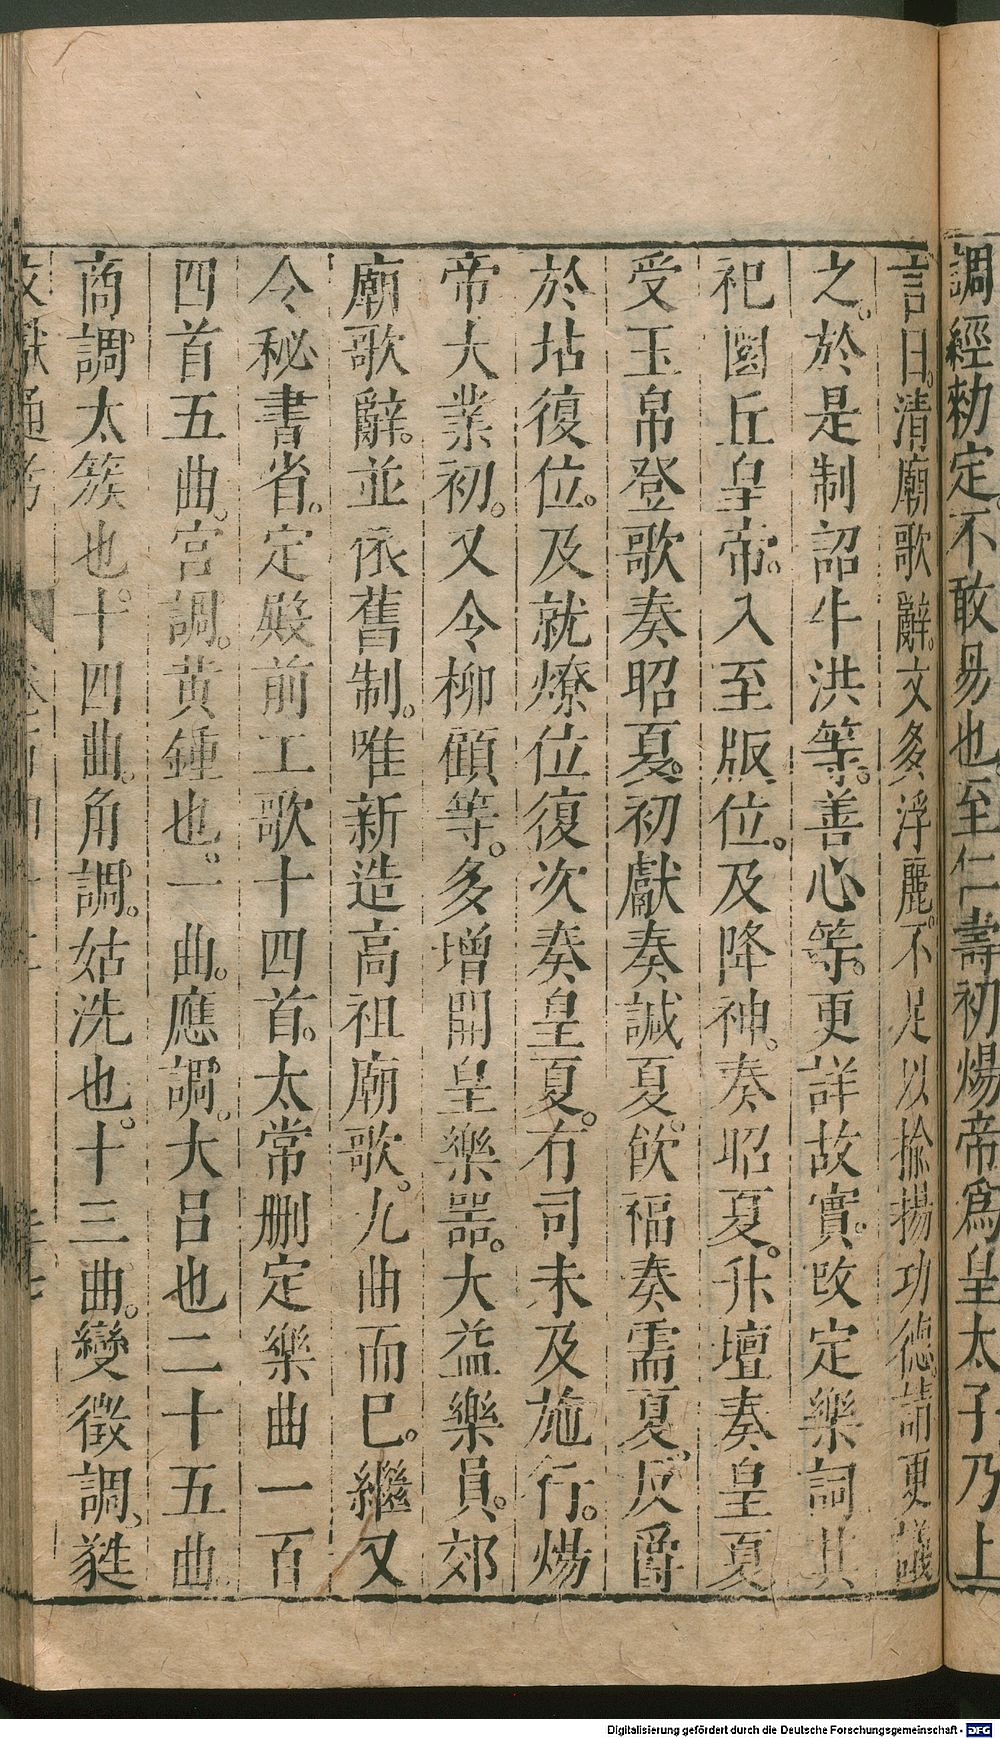 調經勑定不敢易也至仁壽初煬帝爲皇太子乃上
言曰。清廟歌辭。文多浮麗。不足以揄揚功德。請更議
之。於是制詔牛洪等。善心等。更詳故實。改定樂詞其
祀圜丘皇帝。入至版位。及降神。奏昭夏。升壇奏皇夏
受玉帛登歌奏昭夏。初獻奏諴夏。飲福奏需夏、反爵
於坫復位。及就燎位復次奏皇夏。有司未及施行。煬
帝大業初。又令柳顧等。多增開皇樂器。大益樂員。郊
廟歌辭。並依舊制。唯新造高祖廟歌。九曲而巳。繼又
令秘書省。定殿前工歌十四首。太常刪定樂曲一百
四首五曲。宮調。黄鍾也。一曲。應調。大呂也二十五曲。
商調太簇也。十四曲。角調。姑洗也。十三曲。變徵調、蕤
文獻通考
Digitalisierung gefördert durch die Deutsche Forschungsgemeinschaft - DFG